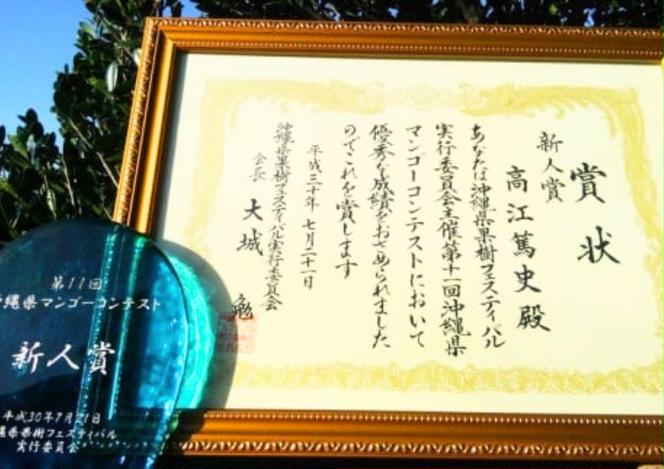 賞状
新人賞
高江篤史殿
あなたは沖縄県果樹フェスティバル
実行委員会主催第十一回沖縄県
マンゴーコンテストにおいて
優秀な成績をおさめられました
のでこれを賞します
平成三十年七月二十一日
沖縄県果樹フェスティバル実行委員会
会長 大城 勉
第11回
沖縄県マンゴーコンテスト
新人賞
平成30年7月21日
縄県果樹フェスティバル
実行委員会